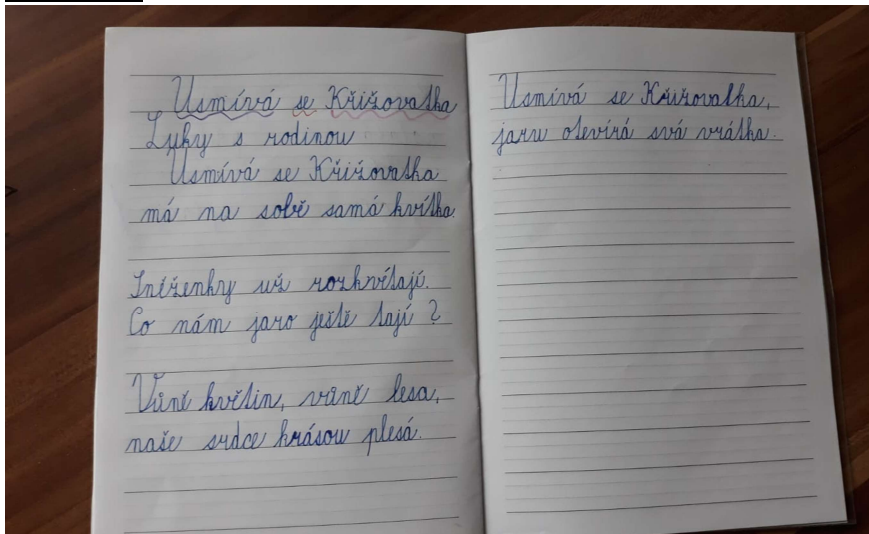 Usmívá se Křižovatka
Luky s rodinou
Usmívá se Křižovatka
má na sobě samá kvítka.
Sněženky už rozkvétají.
Co nám jaro ještě tají?
Vůně květin, vůně lesa,
naše srdce krásou plesá.
Usmívá se Křižovatka,
jaru otevírá svá vrátka.